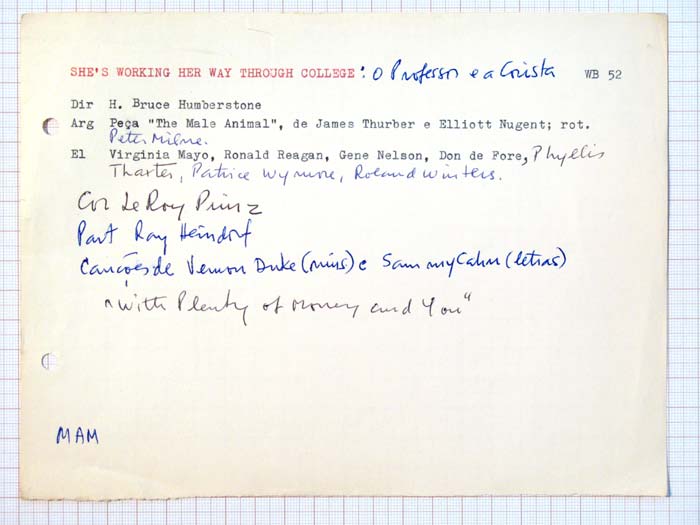 SHE'S WORKING HER WAY THROUGH COLLEGE : O Professor e a Corista WB 52
Dir H. Bruce Humberstone
Arg Peça "The Male Animal", de James Thurber e Elliott Nugent; rot.
Peter Milne.
El Virginia Mayo, Ronald Reagan, Gene Nelson, Don de Fore, Phyllis
Thaxter, Patrice Wymore, Roland Winters.
Cor LeRoy Prinz
Part Ray Heindorf
Canções de Vernon Duke (mús) e Sammy Cahn (letras)
"With Plenty of Money and You"
MAM